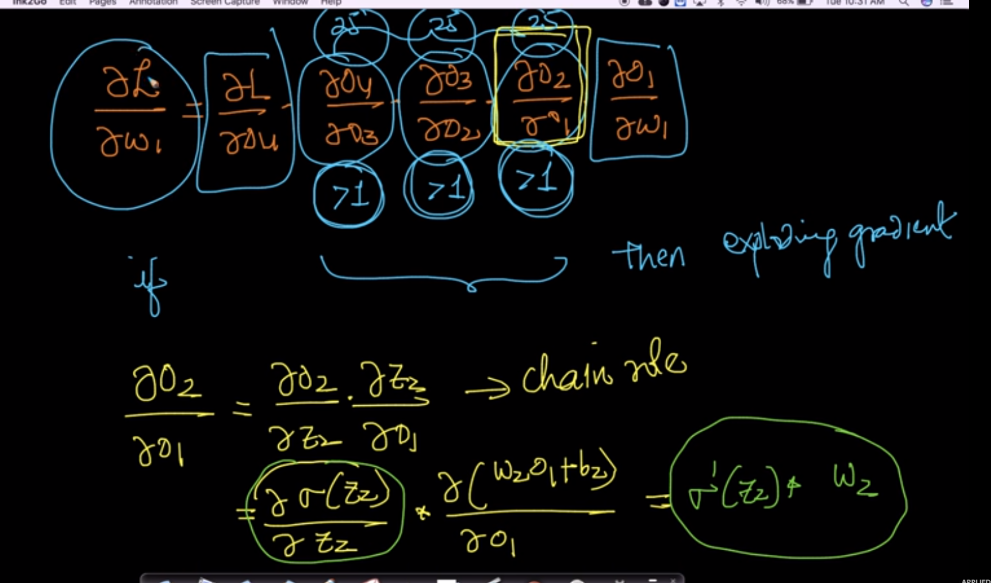 Ink2Go Edit Pages Annotation Screen Capture Window Help 68% Tue 10:31 AM
25 25 25
∂L/∂w₁ = ∂L/∂O4 · ∂O4/∂O3 · ∂O3/∂O2 · ∂O2/∂O1 ∂O1/∂w₁
>1 >1 >1
if then exploding gradient
∂O2/∂O1 = ∂O2/∂Z2 · ∂Z2/∂O1 → chain rule
= ∂σ(Z2)/∂Z2 * ∂(W2O1+b2)/∂O1 = σ'(Z2) * W2
APPLIED